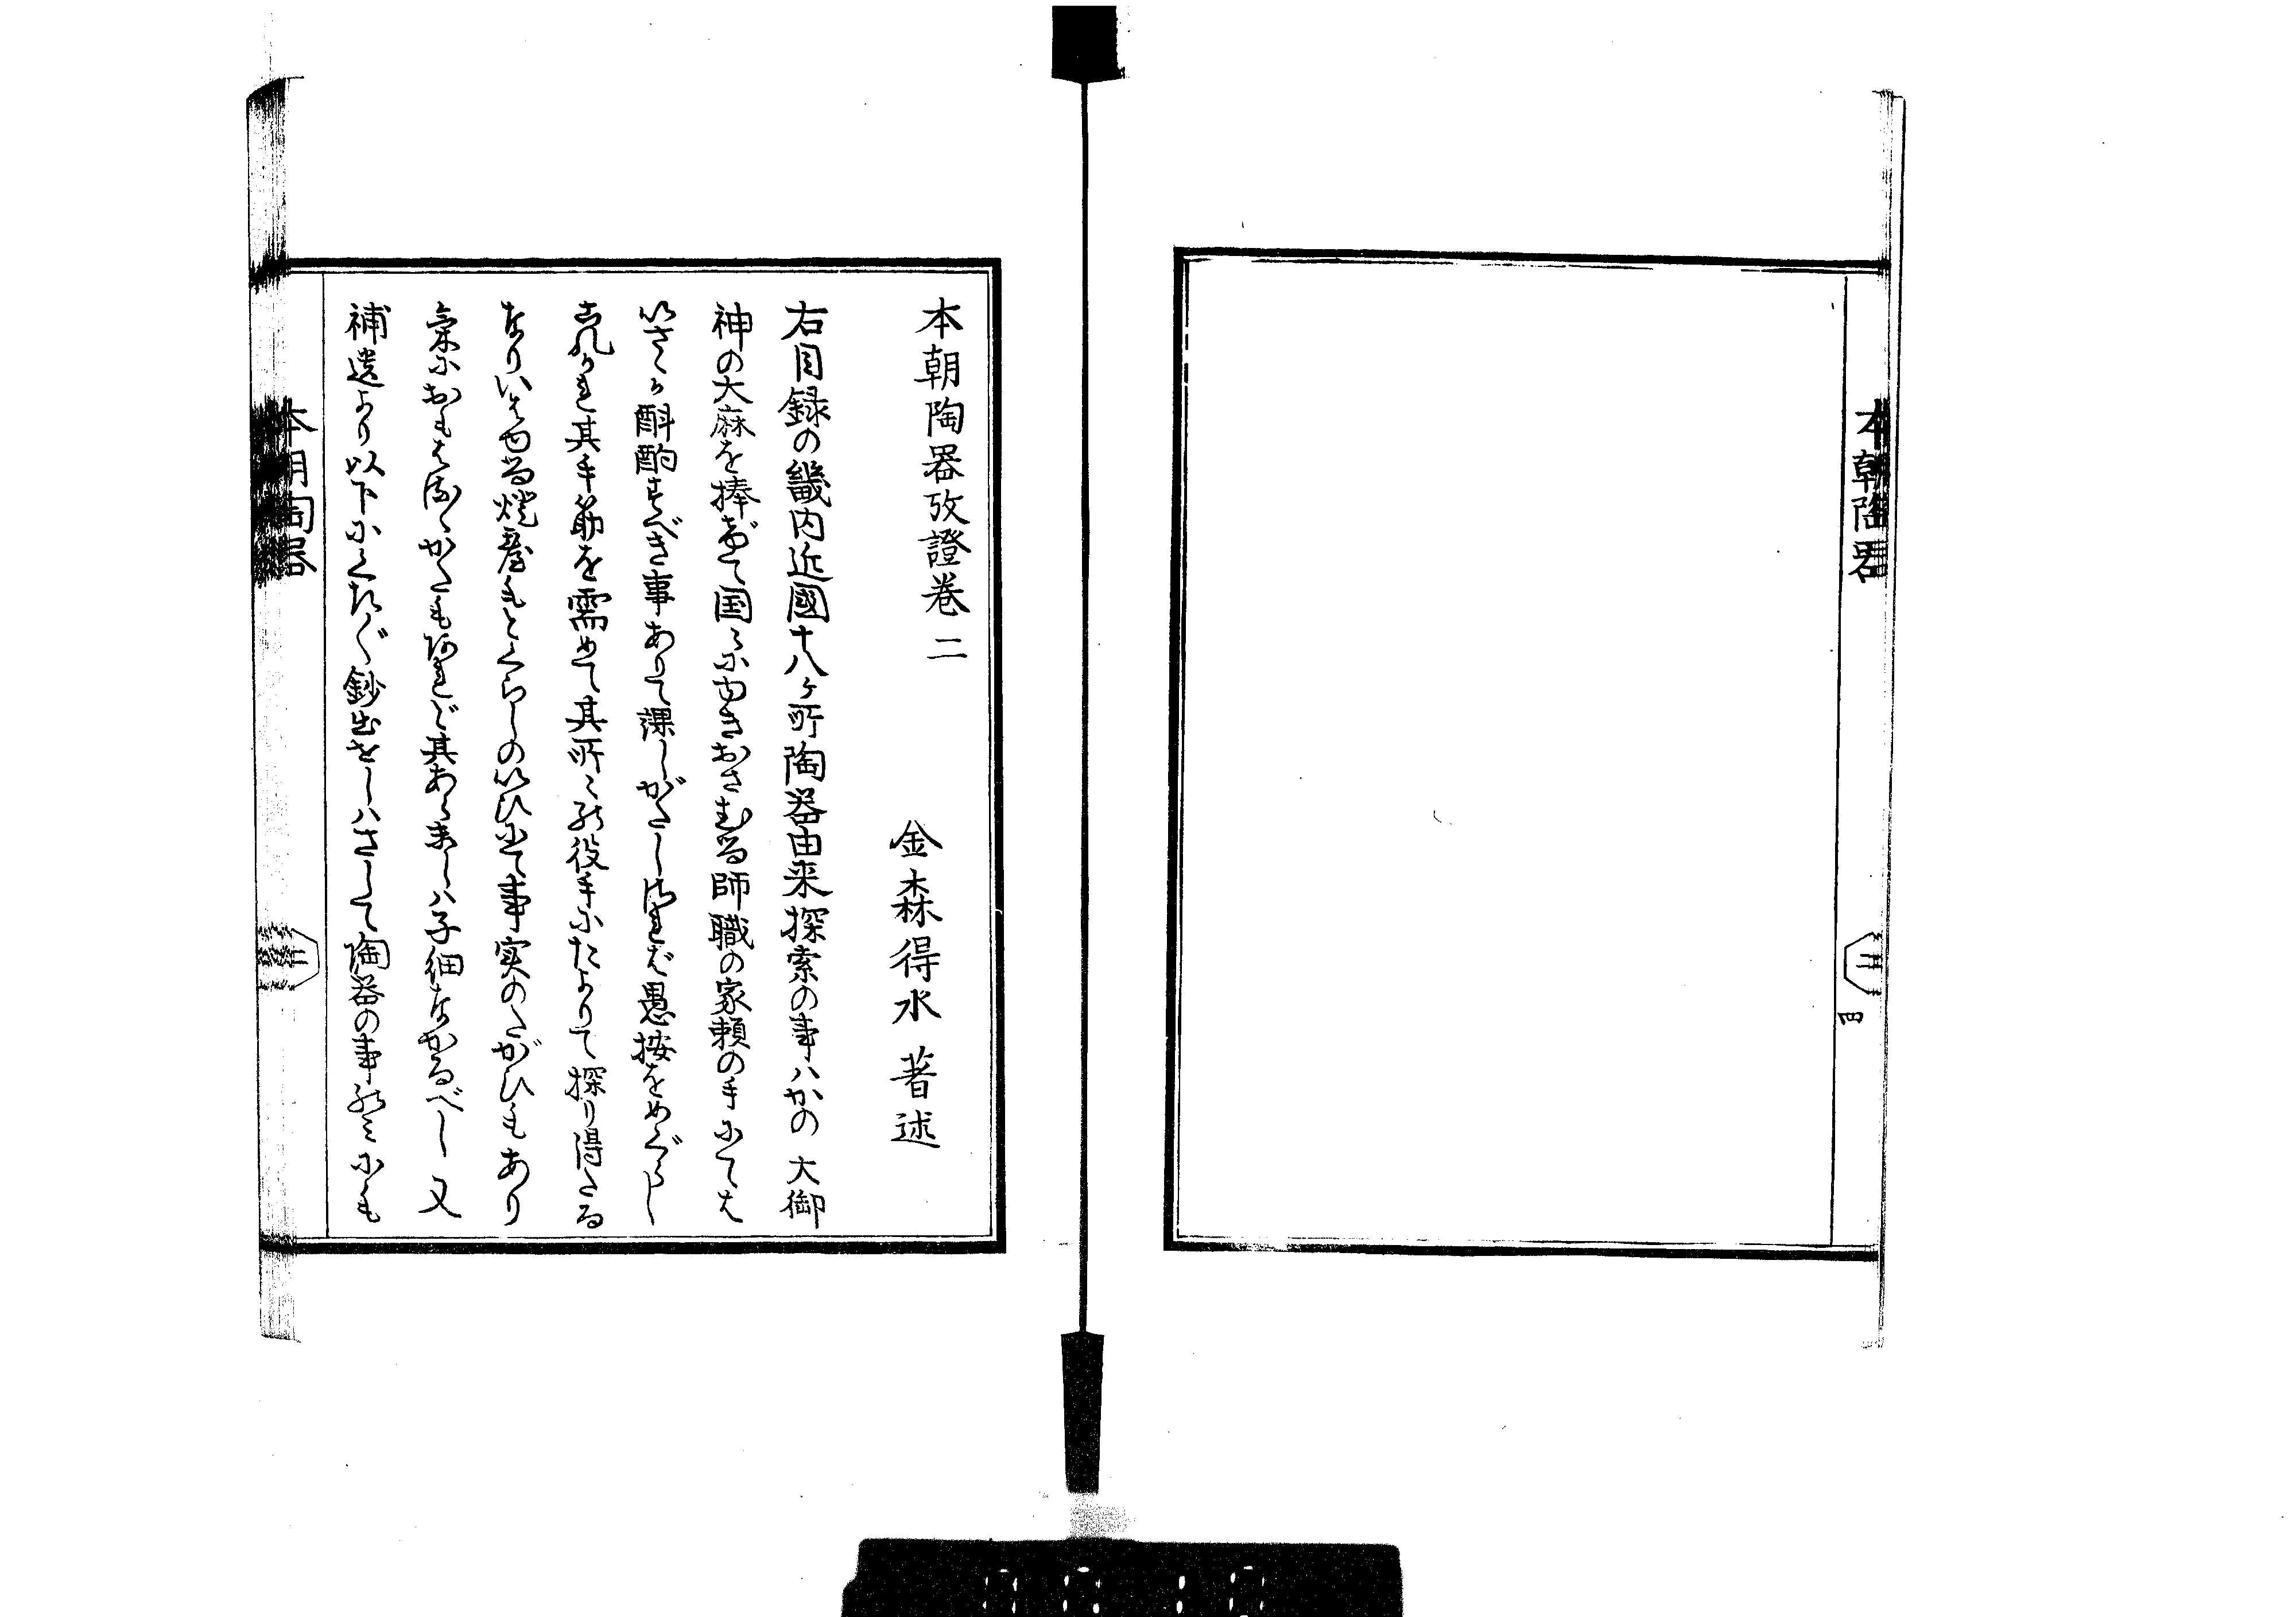 本朝陶器
二
四
本朝陶器攷證巻二
金森得水 著述
右目録の畿内近國十八ヶ所陶器由来探索の事ハかの 大御
神の大麻を捧げて国々にゆきおさむる師職の家頼の手にては
いさゝか斟酌すべき事ありて課しがたしされば愚按をめぐらし
其手筋を需めて其所々の役手にたよりて探り得たる
なりいはゆる焼屋もとくらしのいひ立て事実のたがひもあり
氣におもはるゝかたもあれど其あらましハ子細なかるべし 又
補遺より以下にくだ〳〵鈔出せしハさして陶器の事のミにも
本朝陶器
二